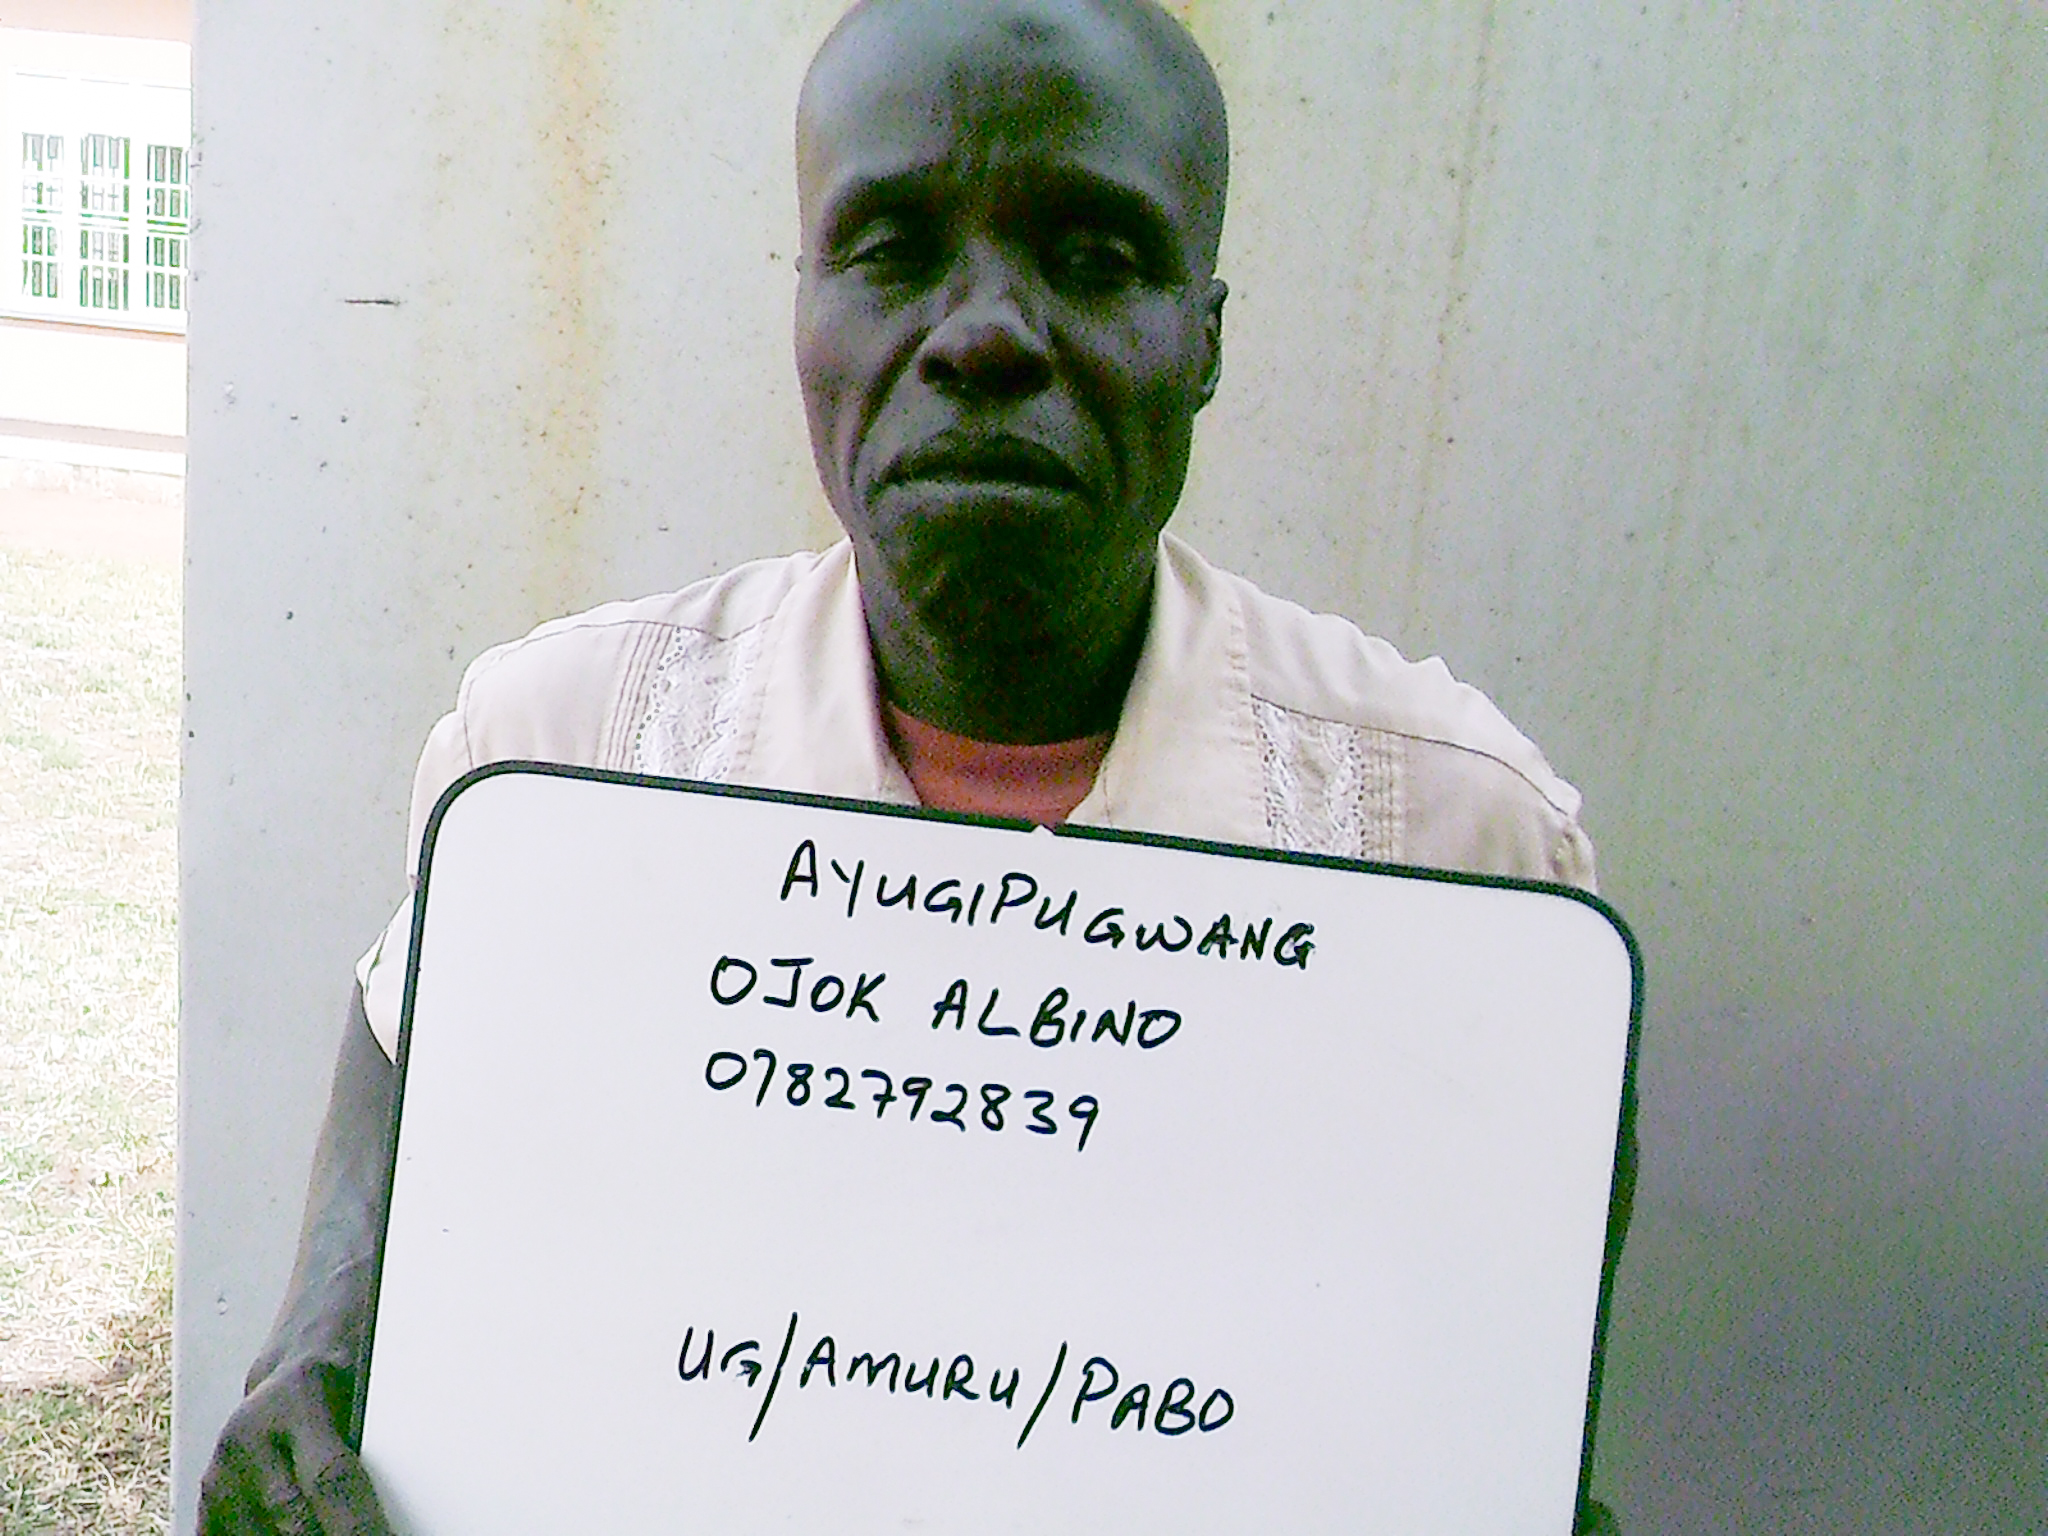 AYUGIPUGWANG
OJOK ALBINO
0782792839
UG/AMURU/PABO